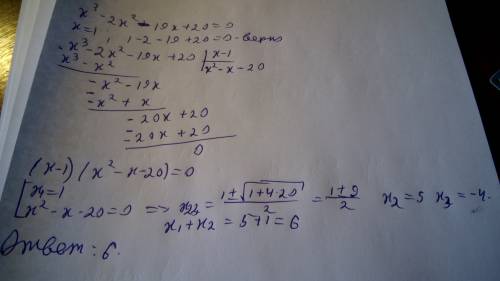 x³-2x²-19x+20=0
x=1, 1-2-19+20=0-верно
x³-2x²-19x+20 | x-1
x³-x² | x²-x-20
-x²-19x
-x²+x
-20x+20
-20x+20
0
(x-1)(x²-x-20)=0
[x₁=1
x²-x-20=0 => x₂,₃ = (1±√(1+4·20))/2 = (1±9)/2 x₂=5 x₃=-4.
x₁+x₂=5+1=6
Ответ: 6.